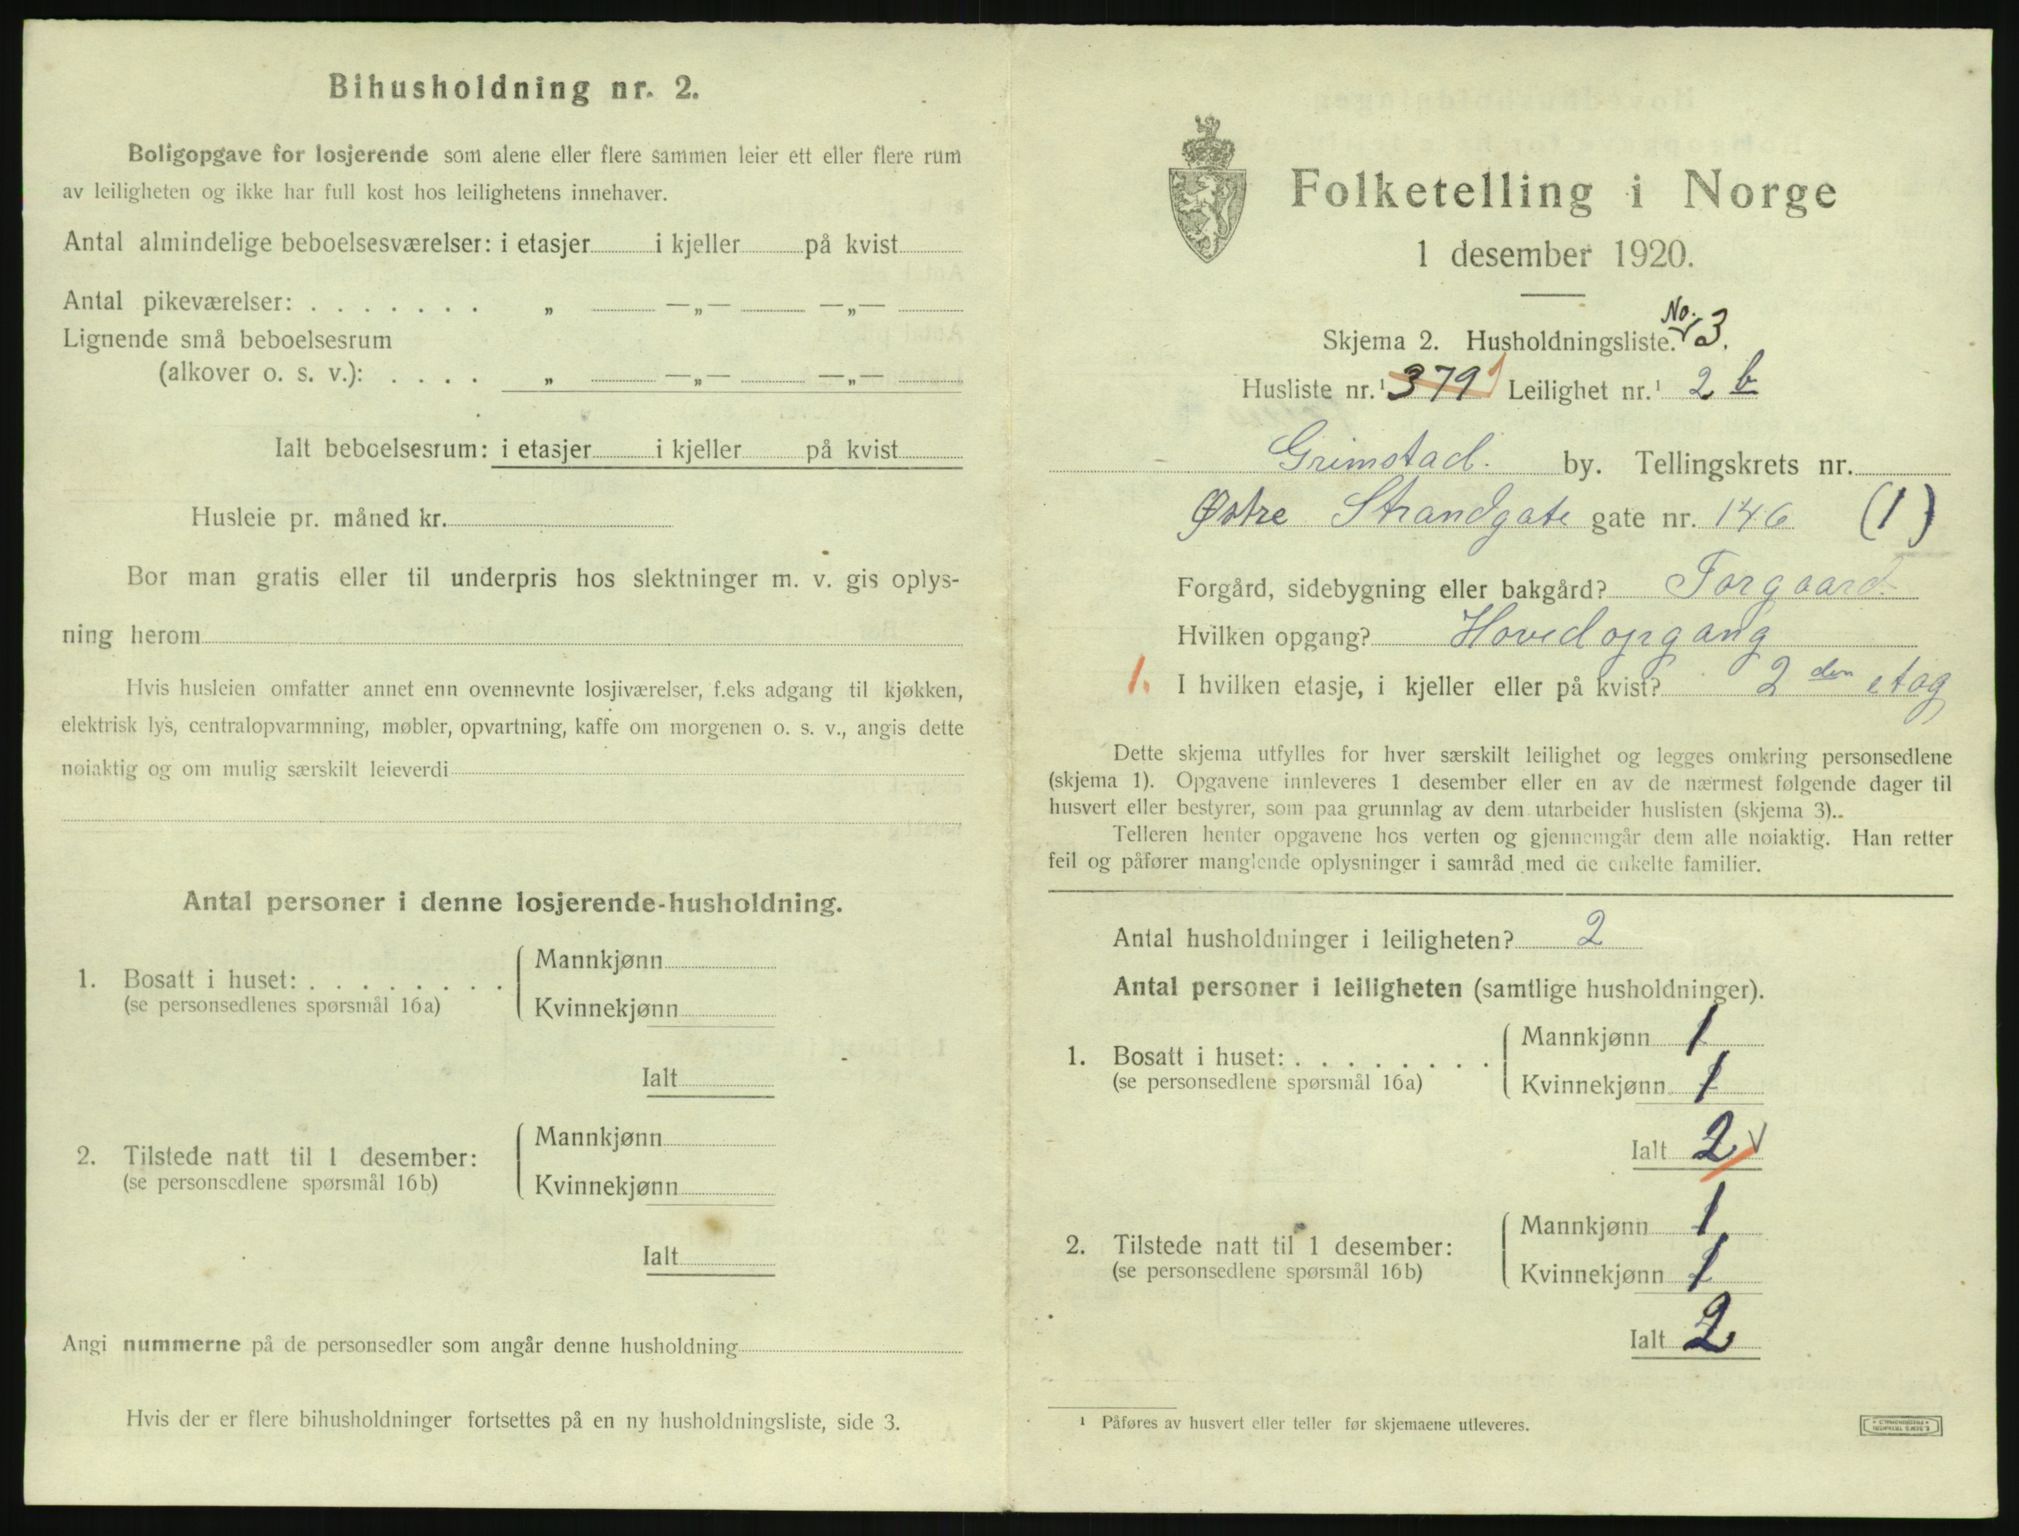 Bihusholdning nr. 2.
Boligopgave for losjerende som alene eller flere sammen leier ett eller flere rum
av leiligheten og ikke har full kost hos leilighetens innehaver.
Antal almindelige beboelsesværelser: i etasjer i kjeller på kvist
Antal pikeværelser: . . . . . . . „ —„— —„—
Lignende små beboelsesrum
(alkover o. s. v.): . . . . „ —„— —„—
Ialt beboelsesrum: i etasjer i kjeller på kvist
Husleie pr. måned kr.
Bor man gratis eller til underpris hos slektninger m. v. gis oplys-
ning herom
Hvis husleien omfatter annet enn ovennevnte losjiværelser, f.eks adgang til kjøkken,
elektrisk lys, centralopvarmning, møbler, opvartning, kaffe om morgenen o. s. v., angis dette
nøiaktig og om mulig særskilt leieverdi
Antal personer i denne losjerende-husholdning.
Mannkjønn
1. Bosatt i huset: . . . . . . . .
(se personsedlenes spørsmål 16a)
Kvinnekjønn
Ialt
Mannkjønn
2. Tilstede natt til 1 desember:
(se personsedlene spørsmål 16b)
Kvinnekjønn
Ialt
Angi nummerne på de personsedler som angår denne husholdning
Hvis der er flere bihusholdninger fortsettes på en ny husholdningsliste, side 3.
Folketelling i Norge
1 desember 1920.
Skjema 2. Husholdningsliste. No. 3.
Husliste nr.¹ 379 Leilighet nr.¹ 2 b
Grimstad. by. Tellingskrets nr.
Østre Strandgate gate nr. 146 (1)
Forgård, sidebygning eller bakgård? Forgaard.
Hvilken opgang? Hovedopgang
1. I hvilken etasje, i kjeller eller på kvist? 2 den etag
Dette skjema utfylles for hver særskilt leilighet og legges omkring personsedlene
(skjema 1). Opgavene innleveres 1 desember eller en av de nærmest følgende dager til
husvert eller bestyrer, som paa grunnlag av dem utarbeider huslisten (skjema 3)..
Telleren henter opgavene hos verten og gjennemgår dem alle nøiaktig. Han retter
feil og påfører manglende oplysninger i samråd med de enkelte familier.
Antal husholdninger i leiligheten? 2
Antal personer i leiligheten (samtlige husholdninger).
Mannkjønn 1
1. Bosatt i huset: . . . . . . . .
(se personsedlene spørsmål 16a)
Kvinnekjønn 1
Ialt 2
Mannkjønn 1
2. Tilstede natt til 1 desember:
(se personsedlene spørsmål 16b)
Kvinnekjønn 1
Ialt 2
¹ Påføres av husvert eller teller før skjemaene utleveres.